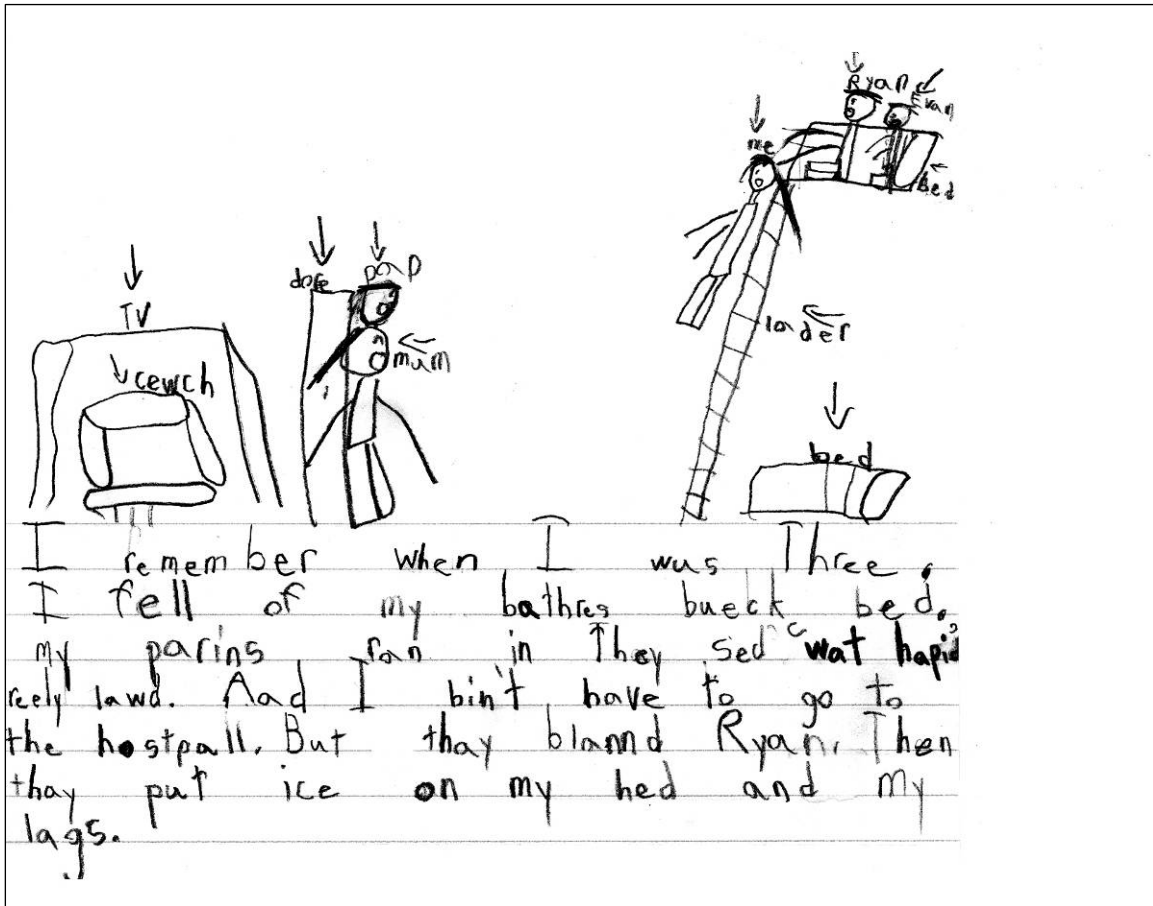 Ryan
Evan
me
bed
dore
pap
TV
mum
lader
cewch
bed
I remember when I wus Three.
I fell of my bathres bueck bed.
my parins ran in They sed "wat hapid"
reely lawd. And I bin't have to go to
the hostpall. But thay blannd Ryan. Then
thay put ice on my hed and my
lags.